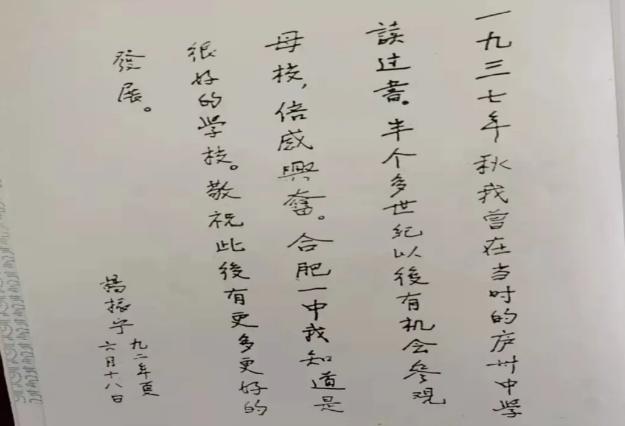 一九三七年秋我曾在当时的庐州中学
読过書。半个多世紀以後有机会參观
母校，倍感興奮。合肥一中我知道是
很好的学校。敬祝此後有更多更好的
發展。
楊振宁
九二年夏
六月十八日